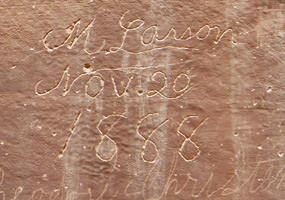 M Larson
Nov. 20
1888